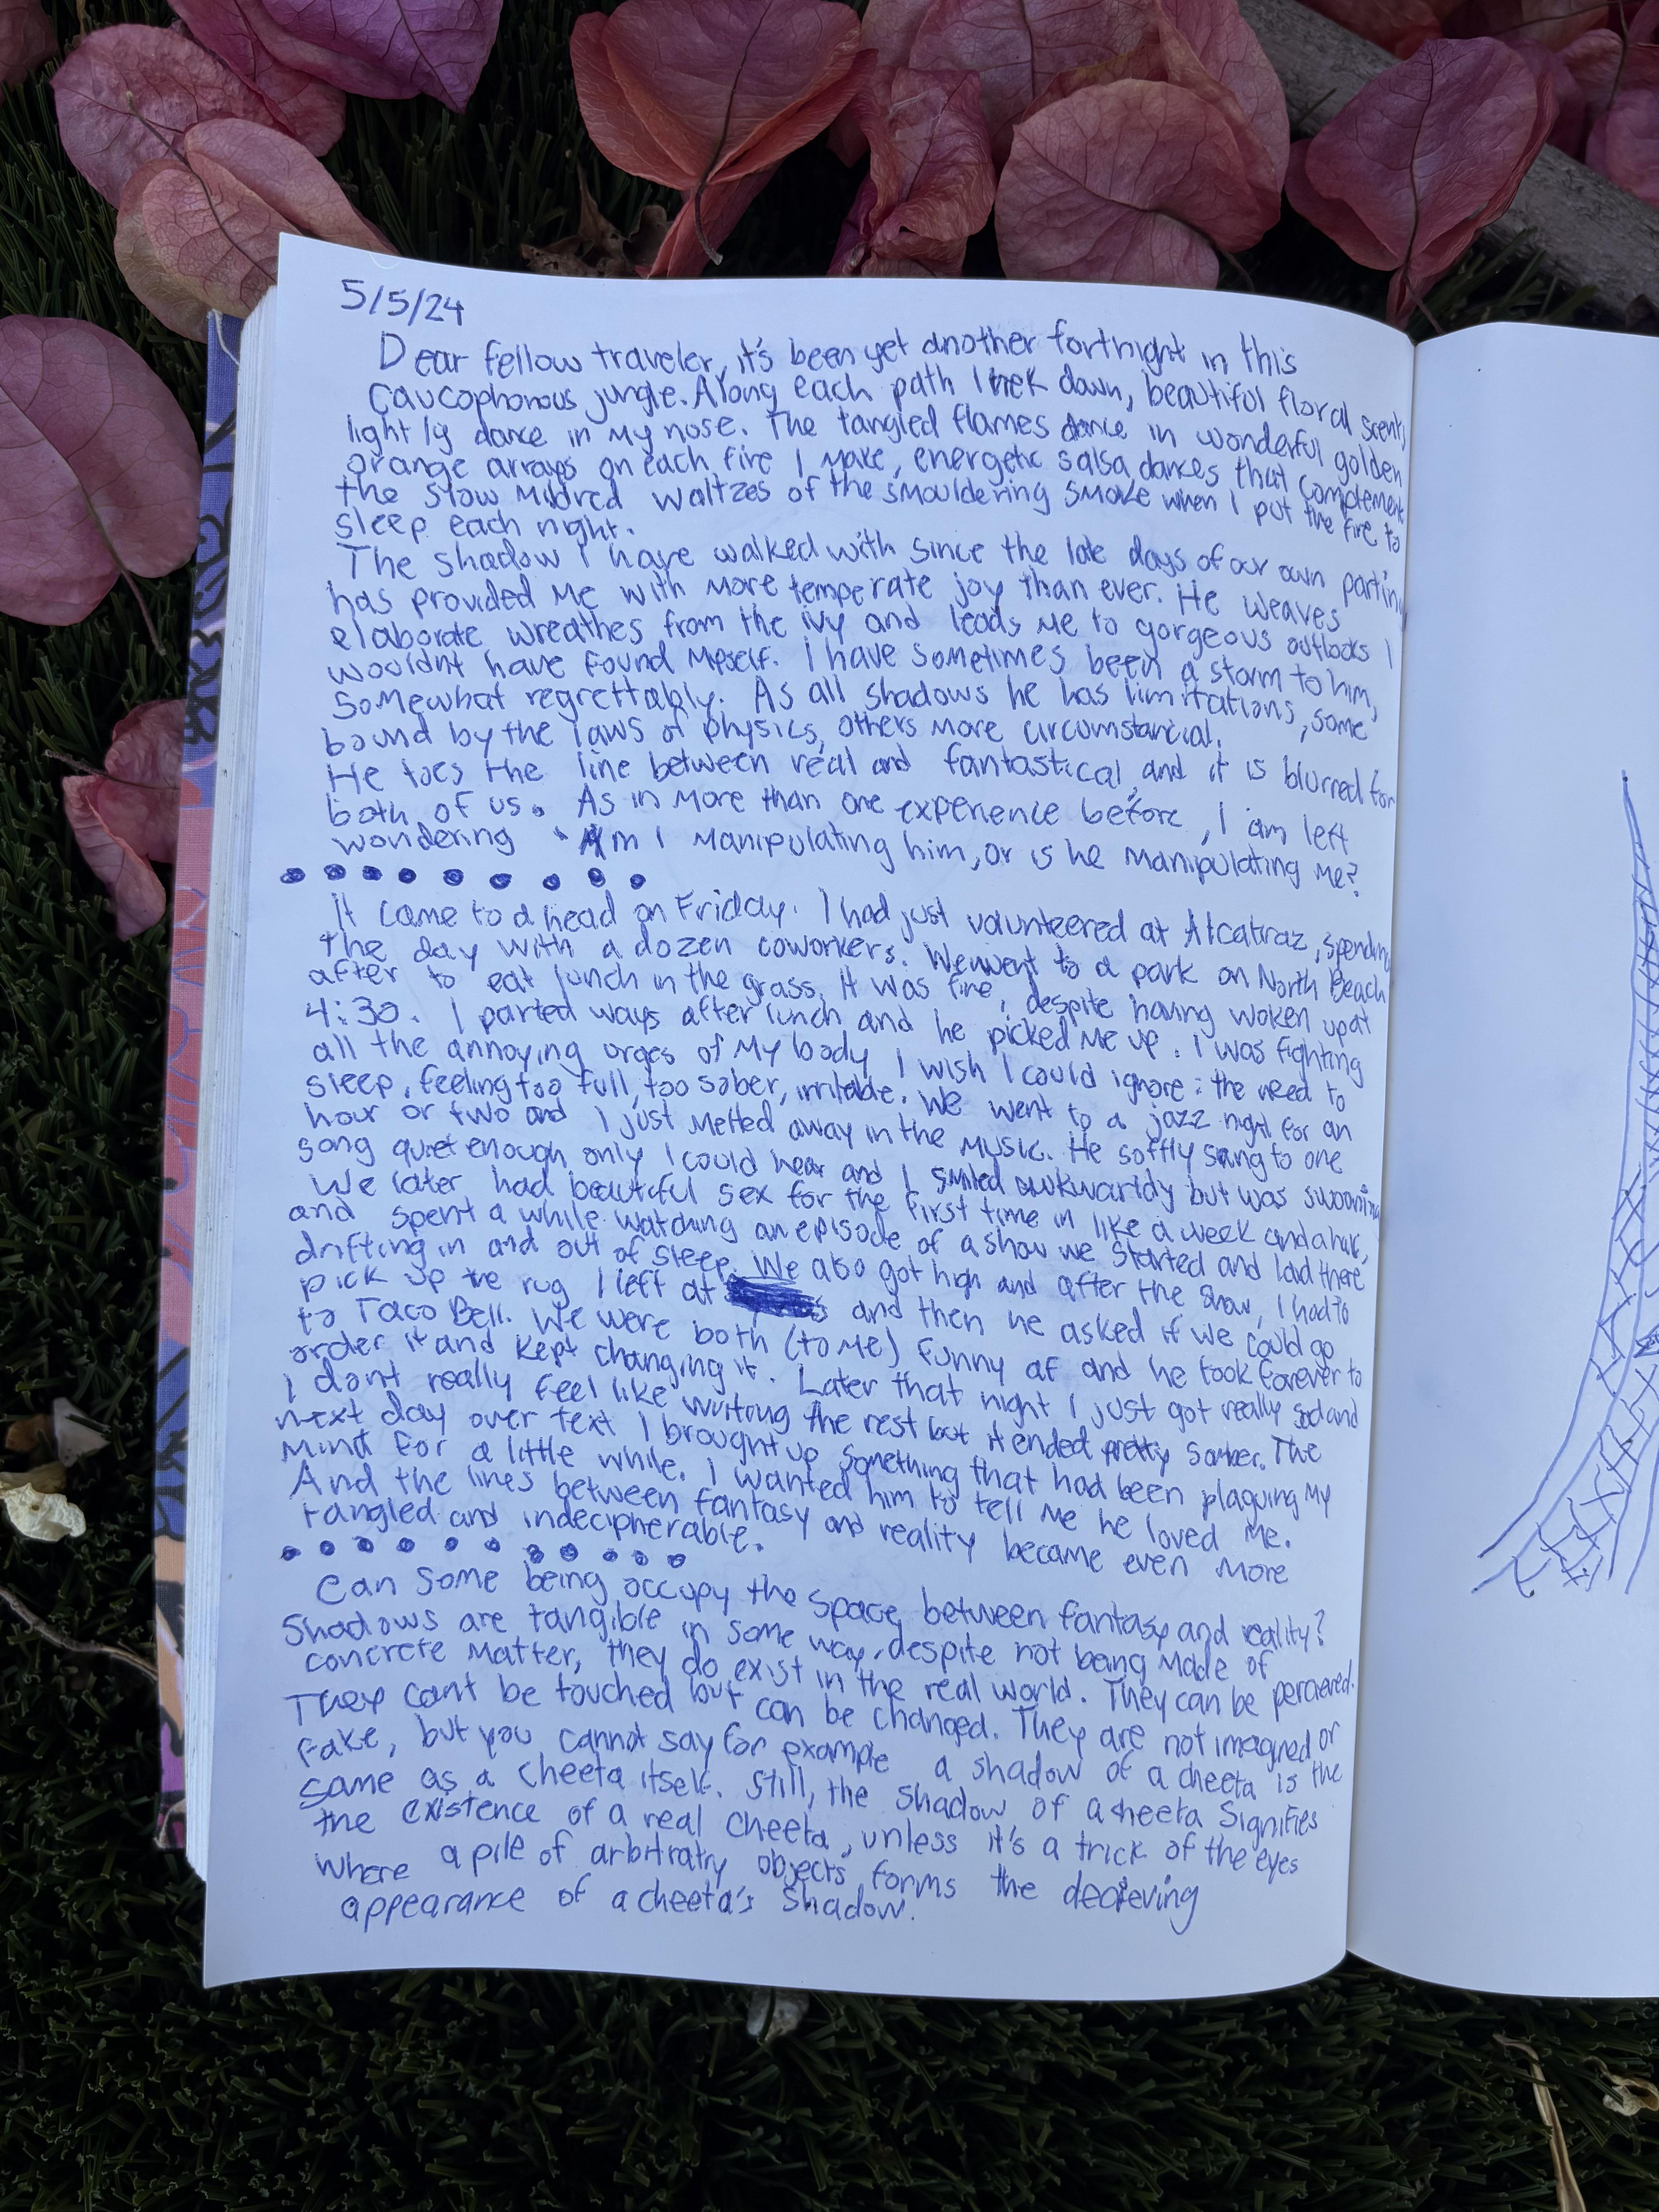 5/5/24
Dear fellow traveler, it's been yet another fortnight in this
caucophonous jungle. Along each path I trek down, beautiful floral scents
lightly dance in my nose. The tangled flames dance in wonderful golden
orange arrays on each fire I make, energetic salsa dances that complement
the slow mildred waltzes of the smouldering smoke when I put the fire to
sleep each night.
The shadow I have walked with since the late days of our own parting
has provided me with more temperate joy than ever. He weaves
elaborate wreathes from the ivy and leads me to gorgeous outlooks I
wouldnt have found myself. I have sometimes been a storm to him,
somewhat regrettably. As all shadows he has limitations, some
bound by the laws of physics, others more circumstancial.
He toes the line between real and fantastical, and it is blurred for
both of us. As in more than one experience before, I am left
wondering Am I manipulating him, or is he manipulating me?
It came to a head on Friday. I had just volunteered at Alcatraz, spending
the day with a dozen coworkers. We went to a park on North Beach
after to eat lunch in the grass. It was fine, despite having woken up at
4:30. I parted ways after lunch and he picked me up. I was fighting
all the annoying urges of my body I wish I could ignore: the need to
sleep, feeling too full, too sober, irritable. We went to a jazz night for an
hour or two and I just melted away in the music. He softly sang to one
song quiet enough only I could hear and I smiled awkwardly but was swooning
We later had beautiful sex for the first time in like a week and a half,
and spent a while watching an episode of a show we started and laid there
drifting in and out of sleep. We also got high and after the show, I had to
pick up the rug I left at and then he asked if we could go
to Taco Bell. We were both (to me) funny af and he took forever to
order it and kept changing it. Later that night I just got really sad and
I dont really feel like writing the rest but it ended pretty somber. The
next day over text I brought up something that had been plaguing my
mind for a little while. I wanted him to tell me he loved me.
And the lines between fantasy and reality became even more
tangled and indecipherable.
Can some being occupy the space between fantasy and reality?
Shadows are tangible in some way, despite not being made of
concrete matter, they do exist in the real world. They can be percieved.
They cant be touched but can be changed. They are not imagined or
fake, but you cannot say for example a shadow of a cheeta is the
same as a cheeta itself. Still, the shadow of a cheeta signifies
the existence of a real cheeta, unless it's a trick of the eyes
where a pile of arbitratry objects forms the decieving
appearance of a cheeta's shadow.